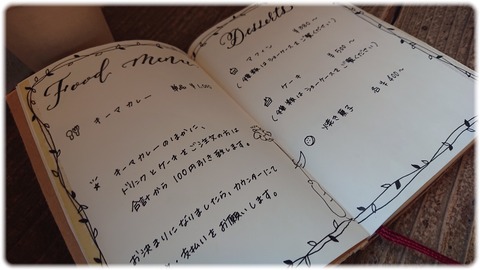 Food menu
キーマカレー
単品 ¥1,000
キーマカレーのほかに、
ドリンクとケーキをご注文の方は
合計から100円引き致します。
お決まりになりましたら、カウンターにて
お支払いをお願いします。
Desserts
マフィン
(種類はショーケースをご覧ください)
ケーキ ¥500〜
(種類はショーケースをご覧ください)
焼き菓子 各¥400〜